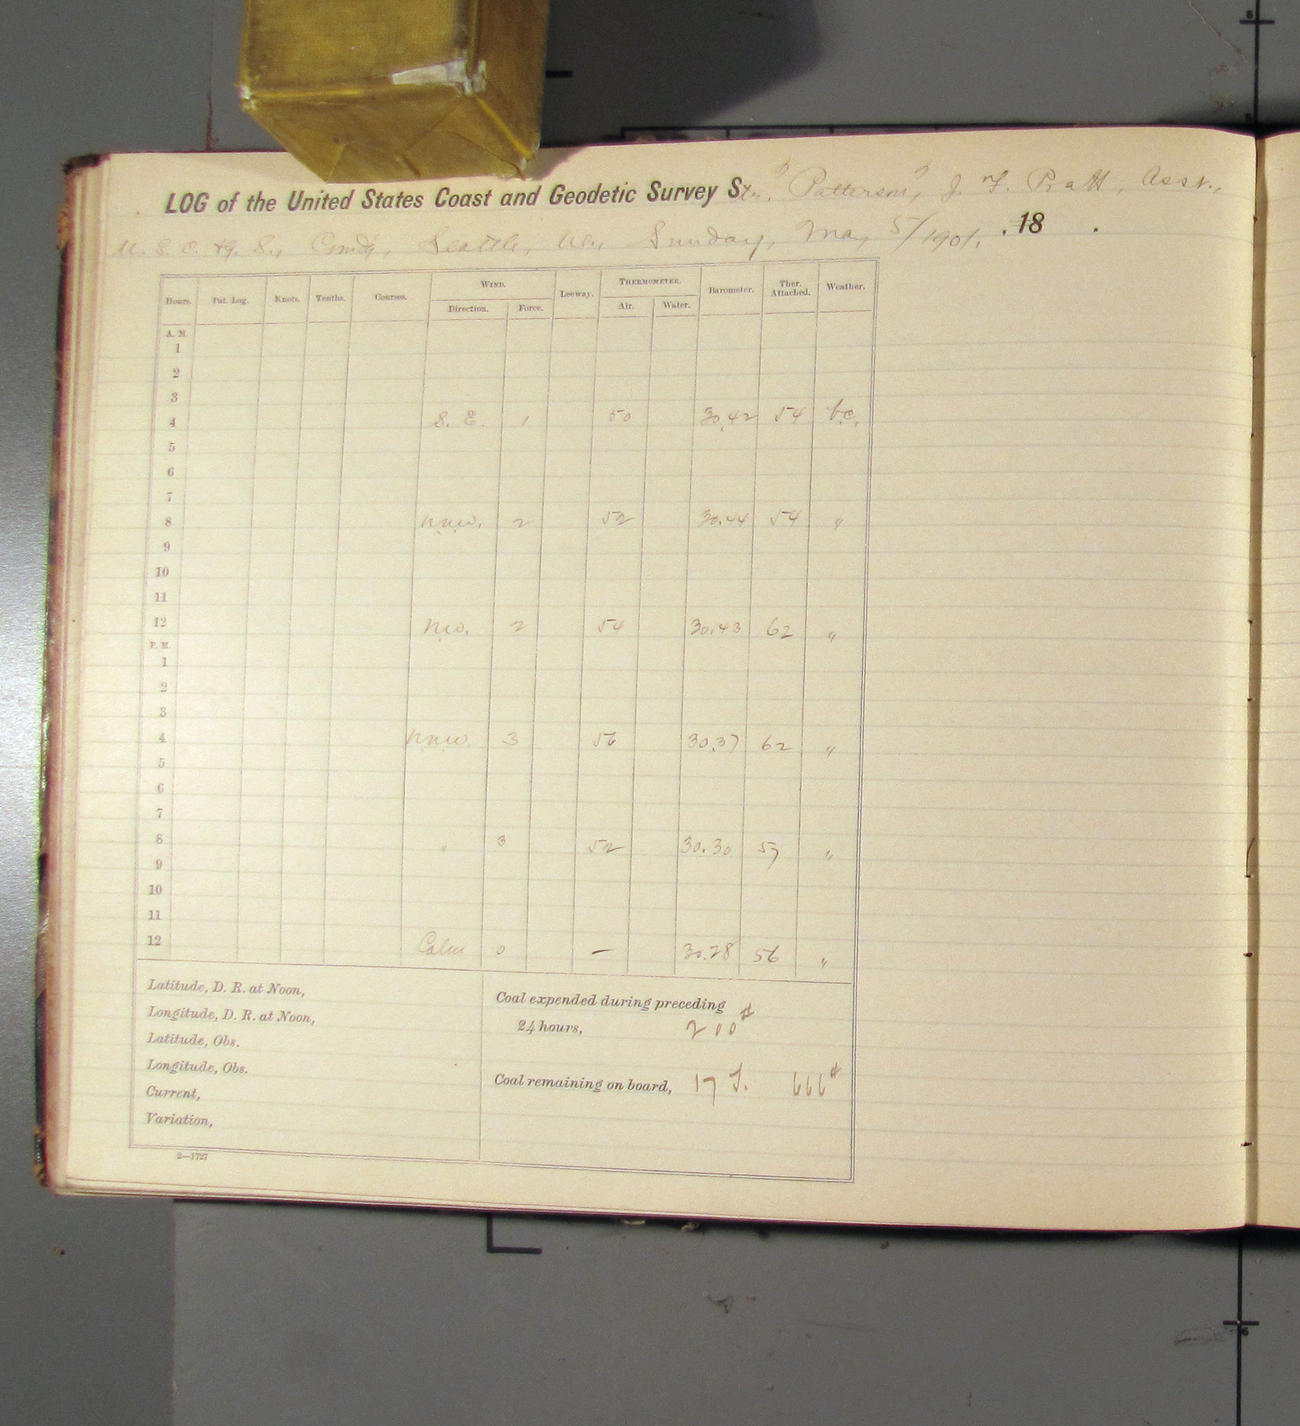 LOG of the United States Coast and Geodetic Survey Str. "Patterson", J. F. Pratt, Asst.,
U. S. C. & G. S., Comd'g, Seattle, Wn, Sunday, May 5/1901. .18 .
Hours. Pat. Log. Knots. Tenths. Courses. Wind. Direction. Force. Leeway. Thermometer. Air. Water. Barometer. Ther. Attached. Weather.
A. M.
1
2
3
4 S. E. 1 50 30.42 54 b.c.
5
6
7
8 n.n.w. 2 52 30.44 54 "
9
10
11
12 n.w. 2 54 30.43 62 "
P. M.
1
2
3
4 n.n.w. 3 56 30.37 62 "
5
6
7
8 " 3 52 30.30 57 "
9
10
11
12 Calm 0 — 30.28 56 "
Latitude, D. R. at Noon,
Longitude, D. R. at Noon,
Latitude, Obs.
Longitude, Obs.
Current,
Variation,
Coal expended during preceding
24 hours, 200#
Coal remaining on board, 17 T. 666#
2—1727